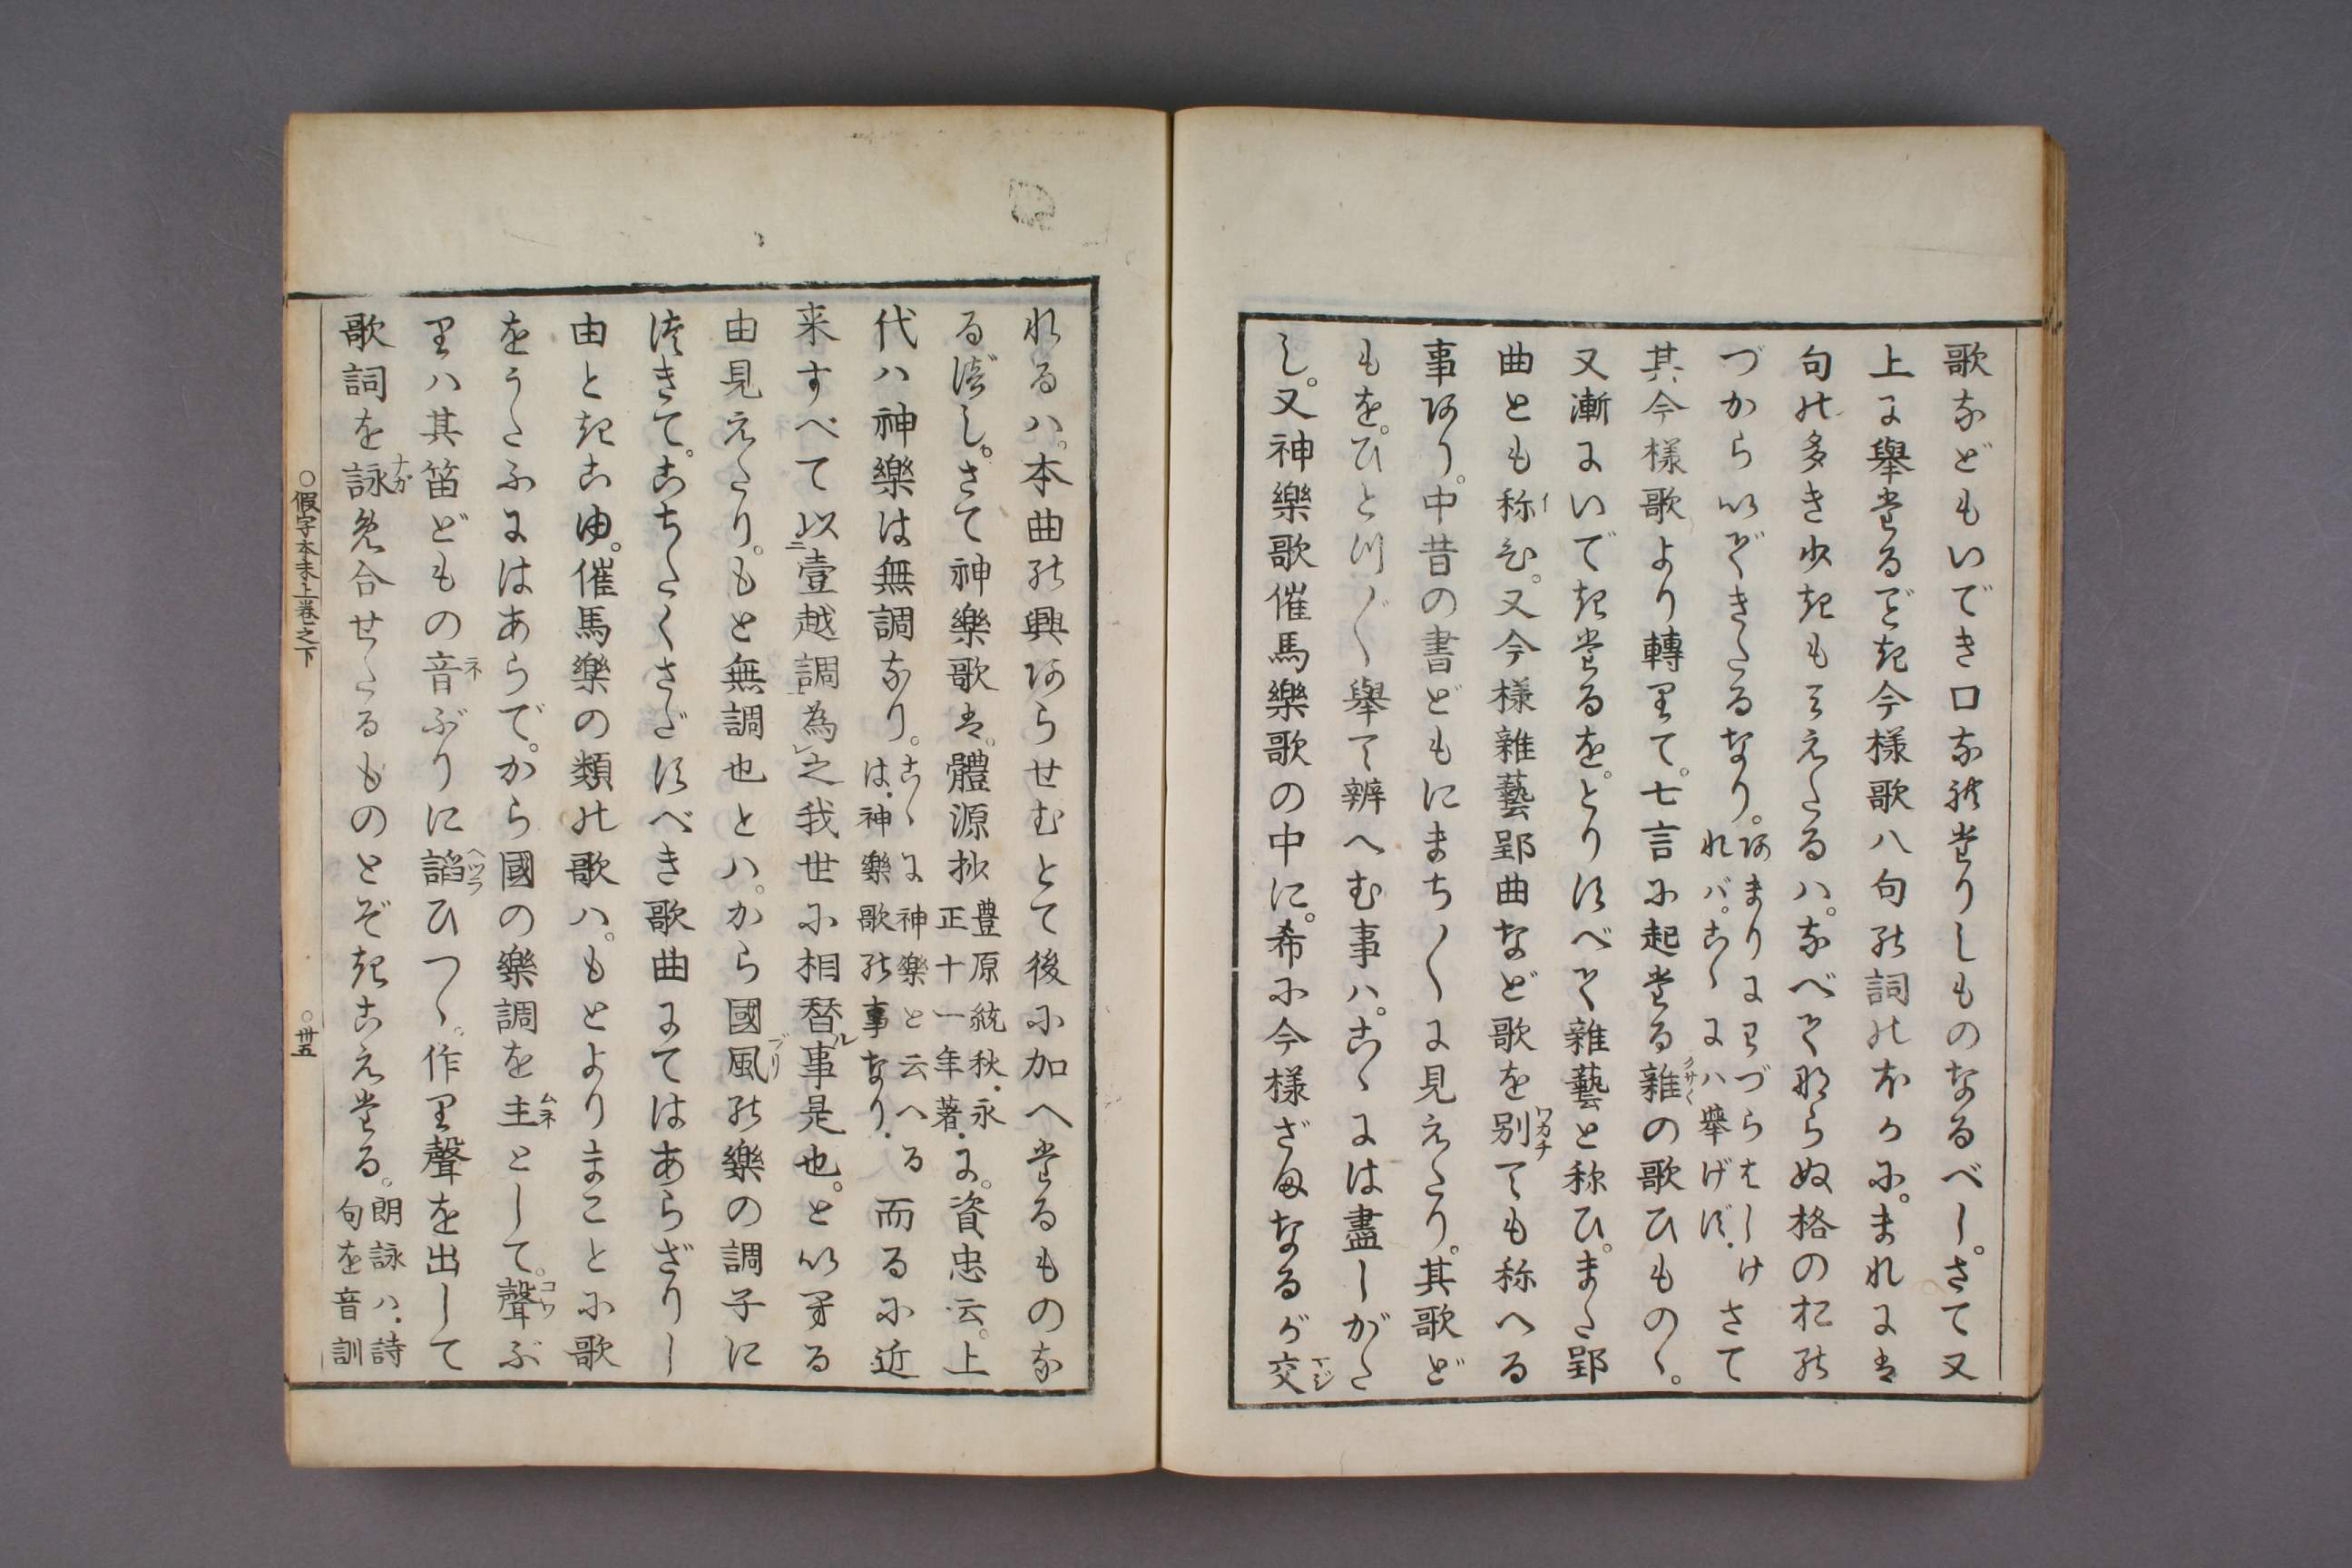 歌などもいでき口なれたりしものなるべし。さて又
上に擧たるごとき今様歌八句の詞のほかに。まれには
句の多き少きもみえたるハ。なべてならぬ格のおの
づからいできたるなり。あまりにわづらはしけ
れバ。こゝにハ擧げず。さて
其今様歌より轉りて。七言に起たる雜クサ〴〵の歌ひもの。
又漸にいできたるを。とりすべて雜藝と称ひ。また郢
曲とも称イひ。又今様雜藝郢曲など歌を別ワカチても称へる
事あり。中昔の書どもにまち〳〵に見えたり。其歌ど
もを。ひとつ〴〵擧て辨へむ事ハ。こゝには盡しがた
し。又神樂歌催馬樂歌の中に。希に今様ざまなるが交マジ
れるハ。本曲の興あらせむとて後に加へたるものな
るべし。さて神樂歌は。體源抄豊原統秋・永
正十一年著・に。資忠云。上
代ハ神樂は無調なり。こゝに神樂と云へる
は・神樂歌の事なり・而るに近
来すべて以二壹越調一為レ之我世に相替ル事是也。といへる
由見えたり。もと無調也とハ。から國風ブリの樂の調子に
つきて。こちたくさだすべき歌曲にてはあらざりし
由ときこゆ。催馬樂の類の歌ハ。もとよりまことに歌
をうたふにはあらで。から國の樂調を主ムネとして。聲コワぶ
りハ其笛どもの音ネぶりに諂ヘツラひつゝ。作り聲を出して
歌詞を詠ナガめ合せたるものとぞきこえたる。朗詠ハ・詩
句を音訓
○假字本末上巻之下
○卅五